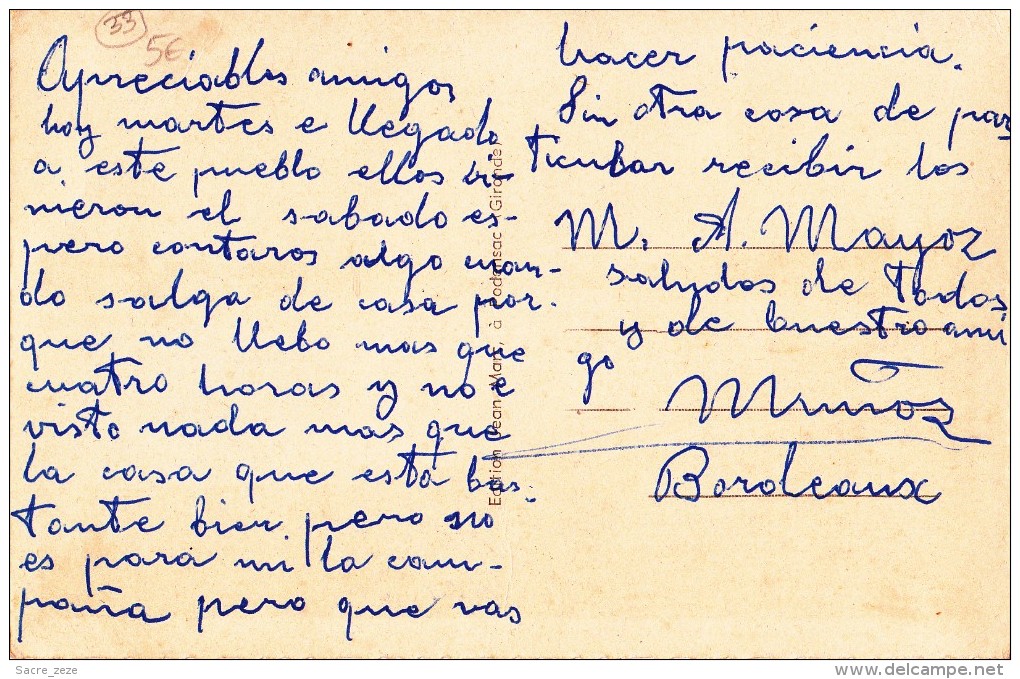 33
5€
Apreciables amigos
hoy martes e llegado
a este pueblo ellos bi-
nieron el sabado es-
pero contaros algo cuan-
do salga de casa por-
que no llebo mas que
cuatro horas y no e
visto nada mas que
la casa que esta bas-
tante bien pero no
es para mi la cam-
paña pero que vas
hacer paciencia.
Sin otra cosa de par
ticular recibir los
M. A. Mayor
saludos de todos
y de buestro ami
go
Muñoz
Bordeaux
Edition Jean Marc, à Podensac (Gironde)
Sacre_zeze
www.delcampe.net